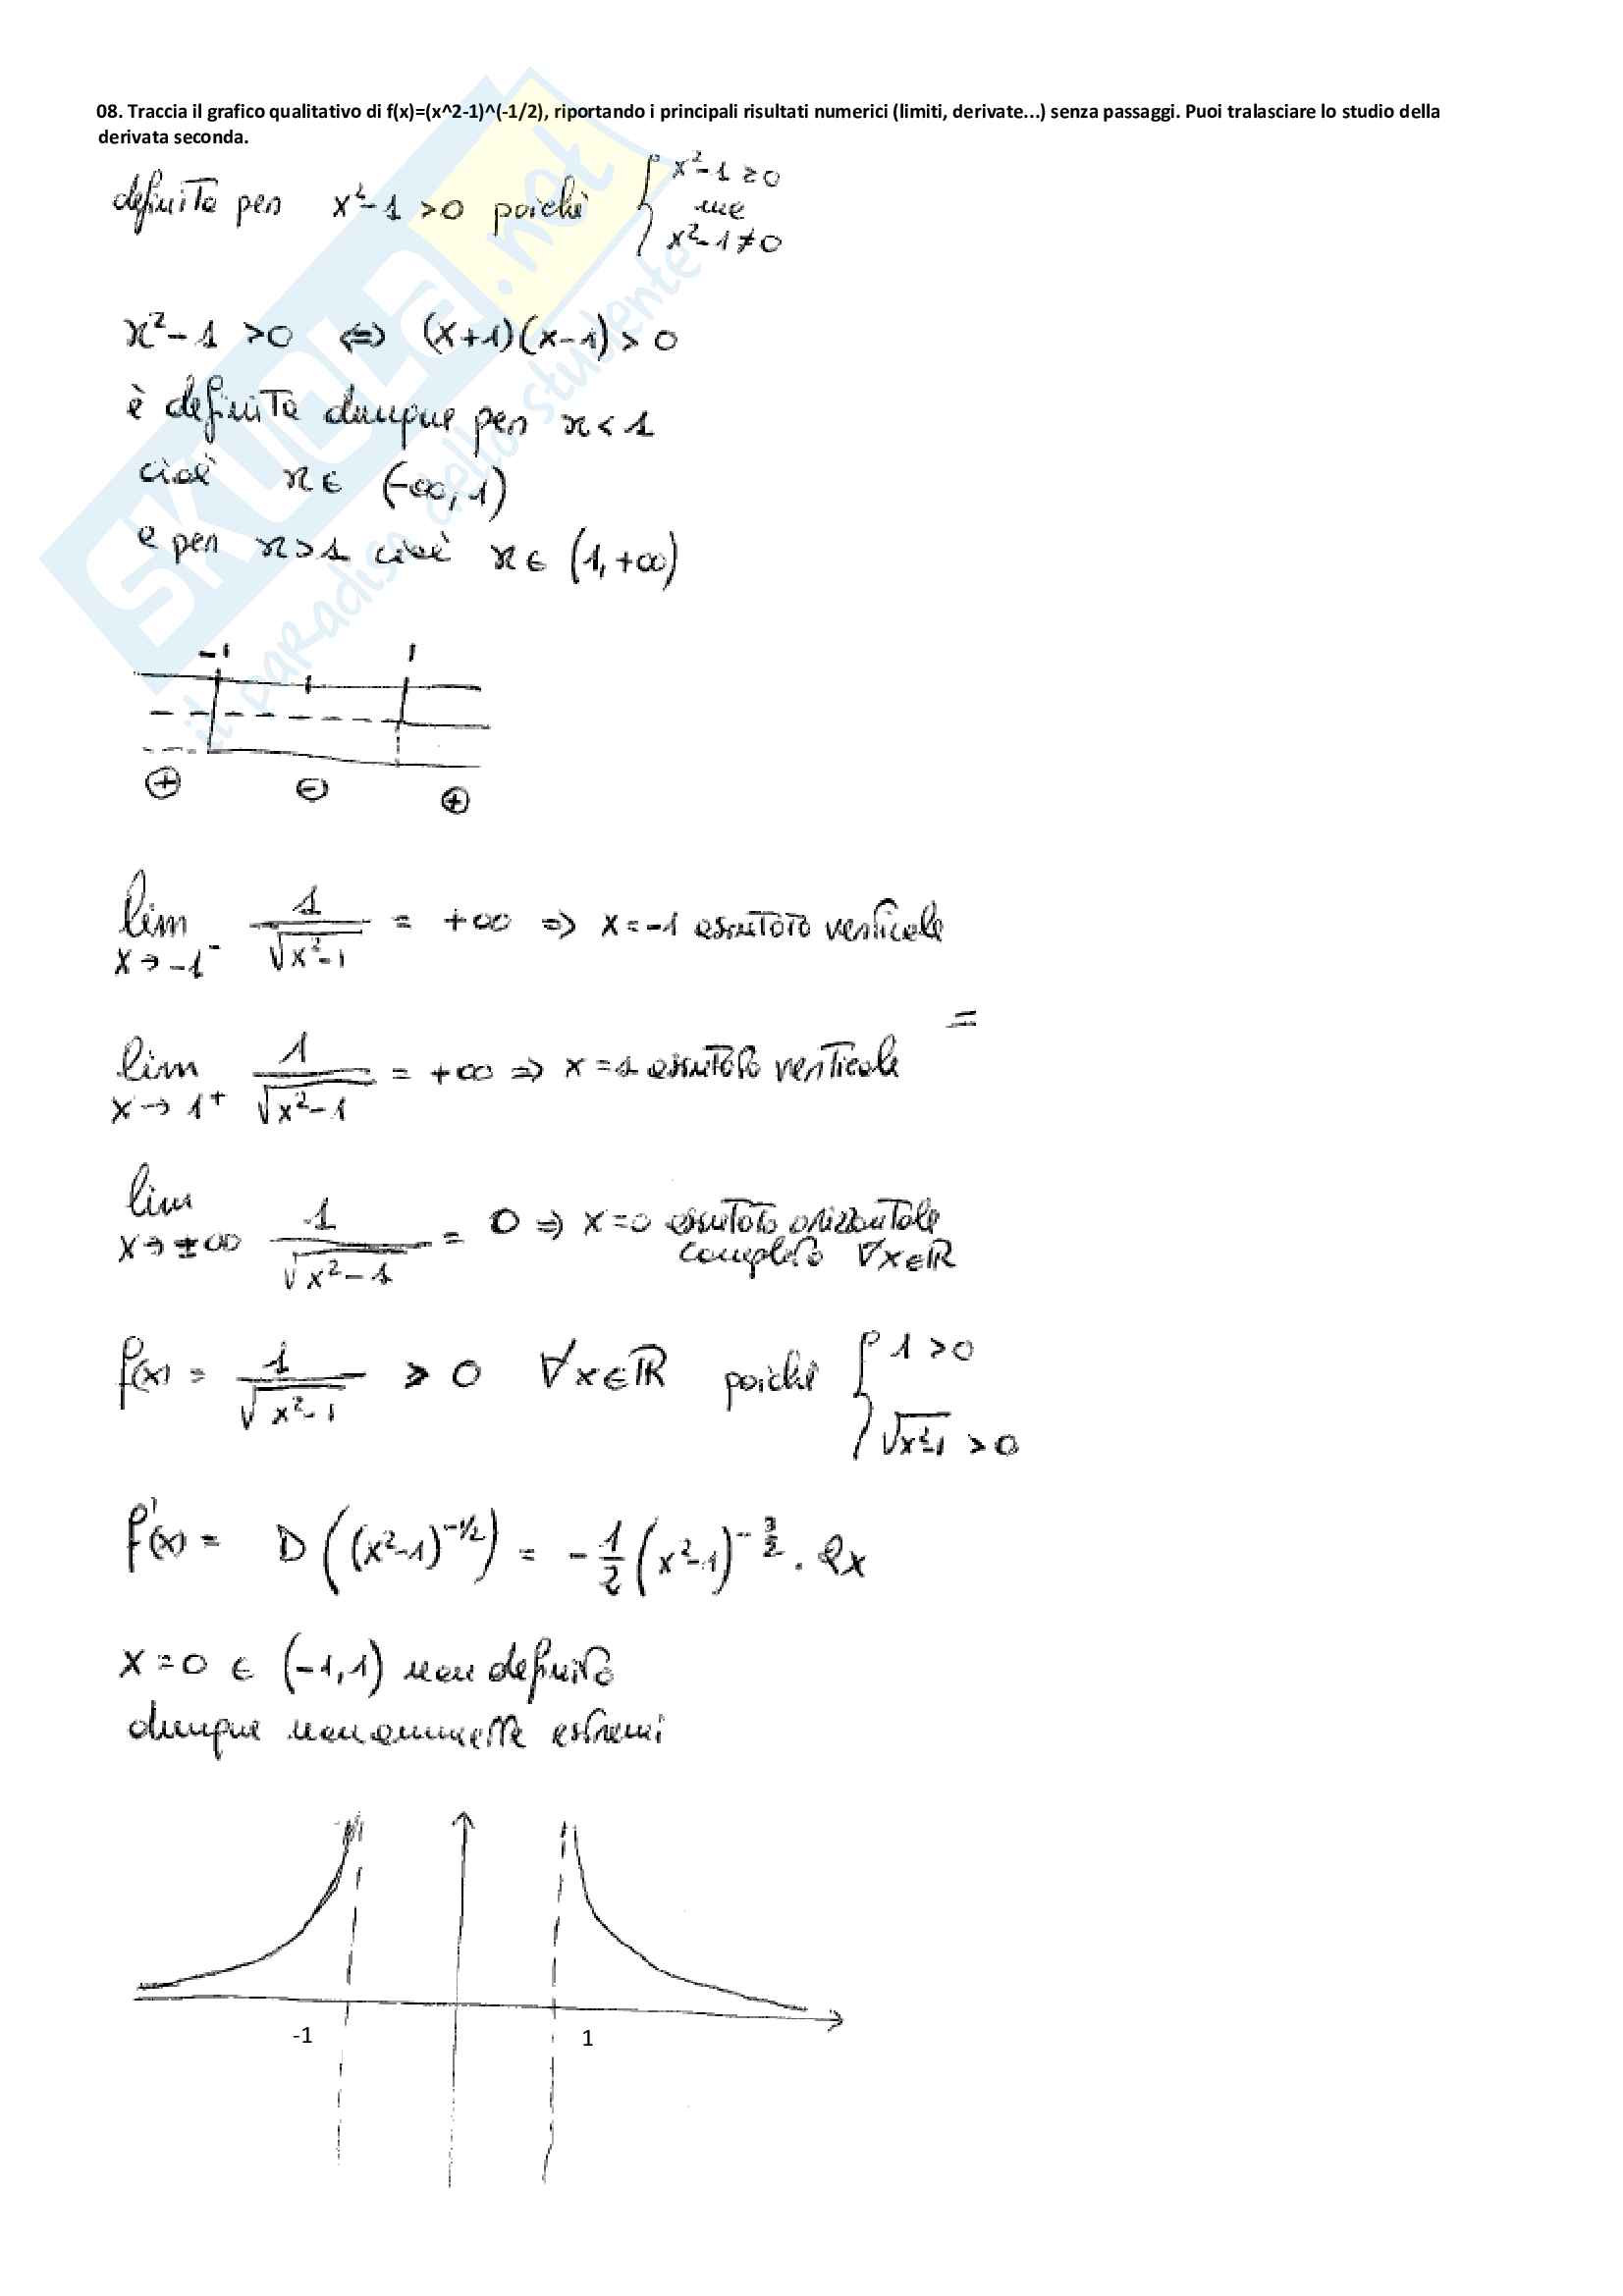 08. Traccia il grafico qualitativo di f(x)=(x^2-1)^(-1/2), riportando i principali risultati numerici (limiti, derivate...) senza passaggi. Puoi tralasciare lo studio della
derivata seconda.
definita per x²-1 >0 poichè { x²-1 ≥0 ma x²-1≠0
x²-1 >0 ⇔ (x+1)(x-1)>0
è definita dunque per x<1
cioè x∈ (-∞,1)
e per x>1 cioè x∈ (1,+∞)
-1 1
+ - +
lim x→-1⁻ 1/√(x²-1) = +∞ ⇒ x=-1 asintoto verticale
=
lim x→1⁺ 1/√(x²-1) = +∞ ⇒ x=1 asintoto verticale
lim x→±∞ 1/√(x²-1) = 0 ⇒ x=0 asintoto orizzontale
completo ∀x∈R
f(x) = 1/√(x²-1) > 0 ∀x∈R poichè { 1>0 √(x²-1) >0
f'(x) = D((x²-1)^(-1/2)) = -1/2 (x²-1)^(-3/2) · 2x
x=0 ∈ (-1,1) non definito
dunque non ammette estremi
-1 1
SKUOLA.net
il paradiso dello studente